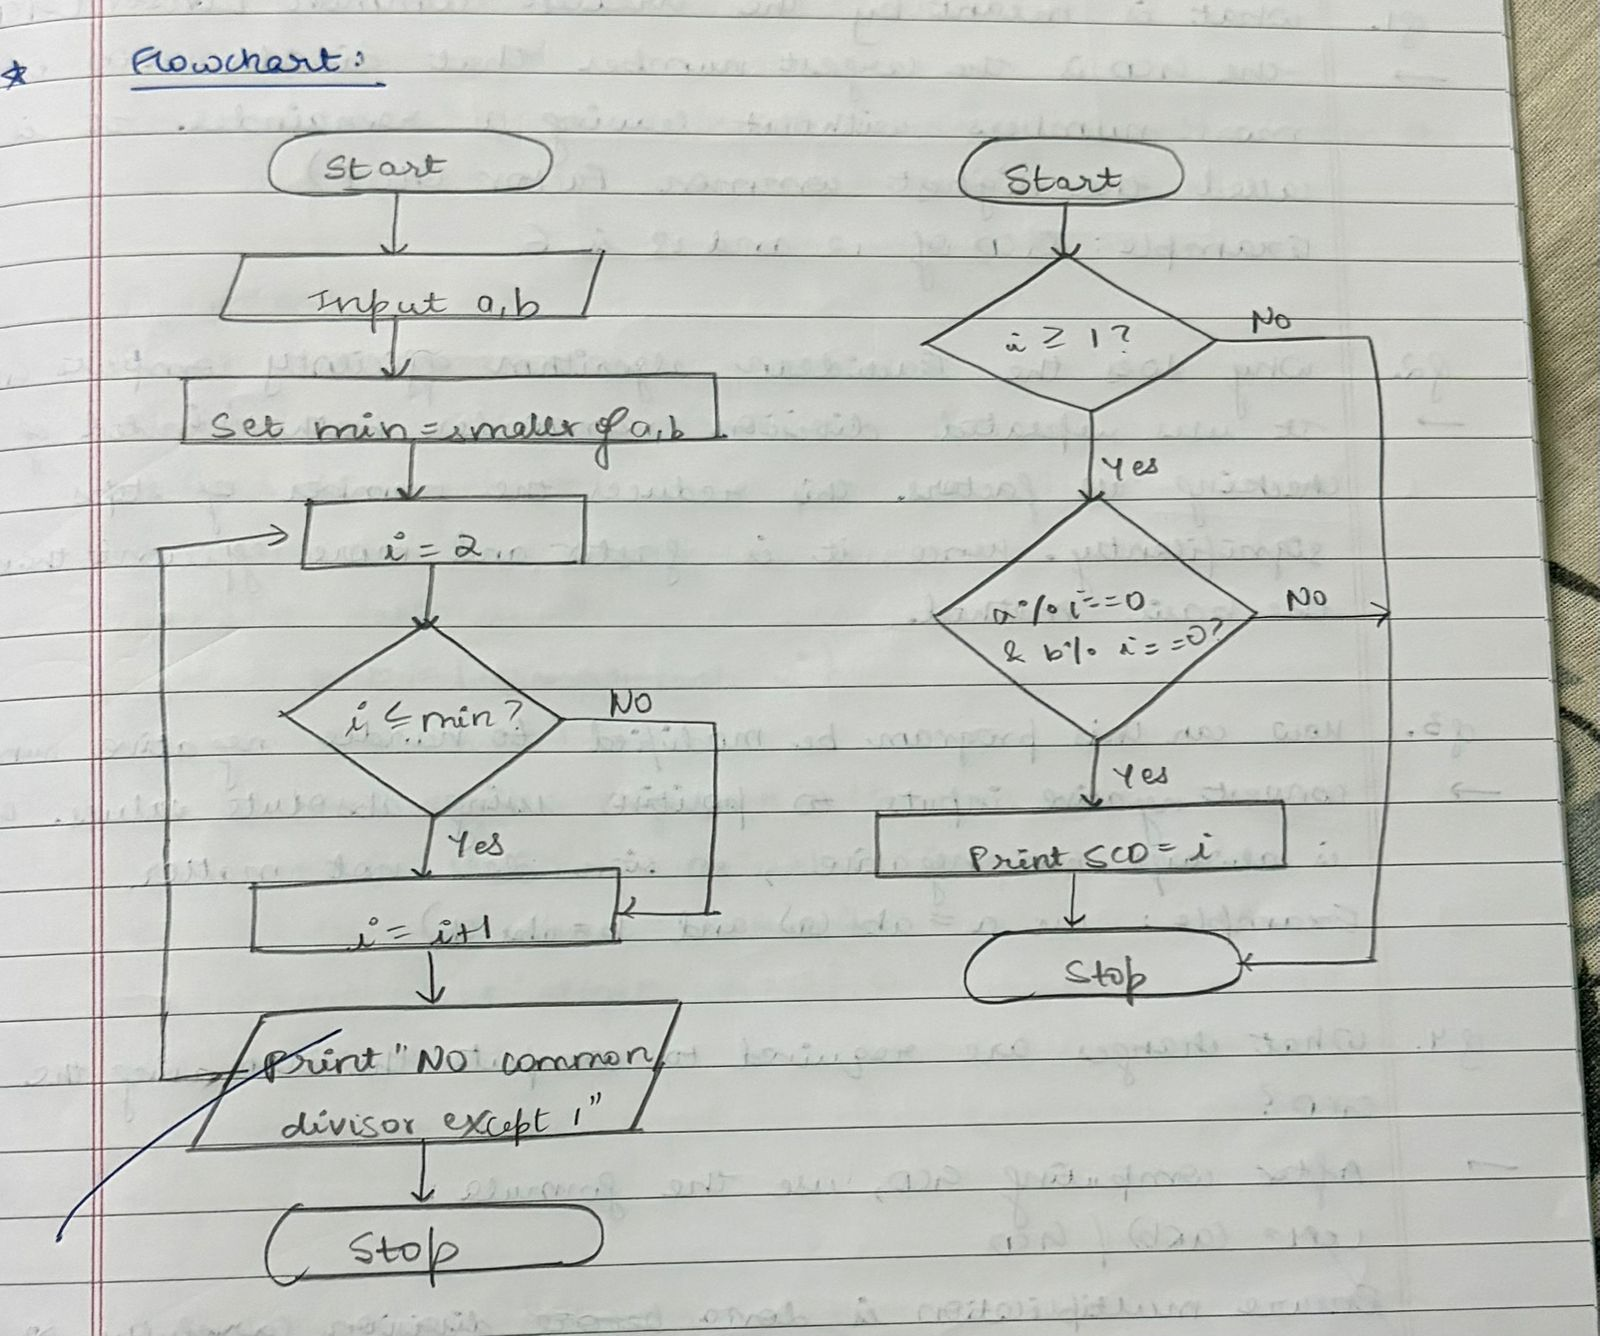 * Flowchart:
Start
Input a,b
Set min = smaller of a,b
i = 2
i ≤ min?
NO
Yes
i = i+1
Print "NO common
divisor except 1"
Stop
Start
i ≥ 1?
No
Yes
a % i == 0
& b % i == 0?
No
Yes
Print SCD = i
Stop